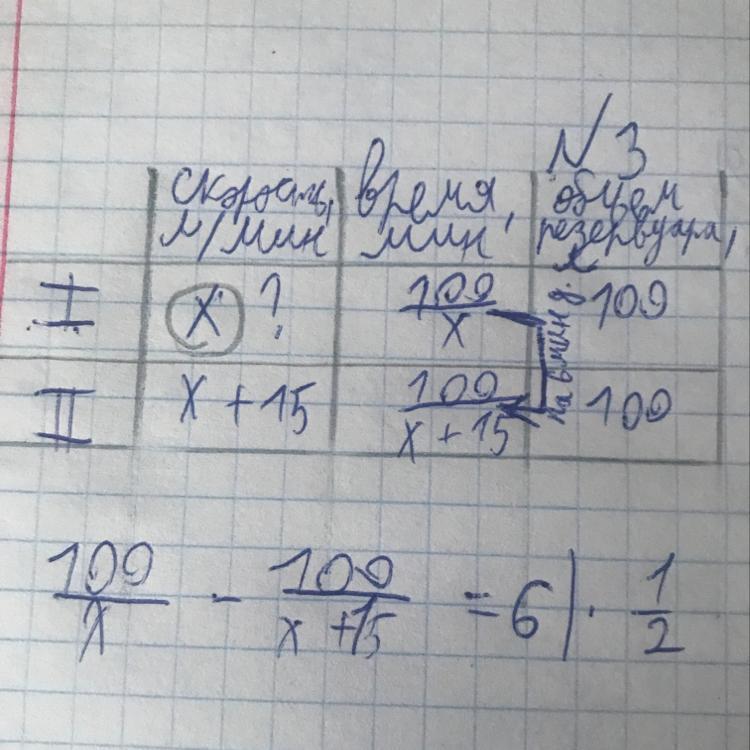 №3
скорость, л/мин | время, мин | объем резервуара, л
I | x ? | 100/x | 100
на 6 мин д.
II | x + 15 | 100/(x + 15) | 100
100/x - 100/(x + 15) = 6 | · 1/2